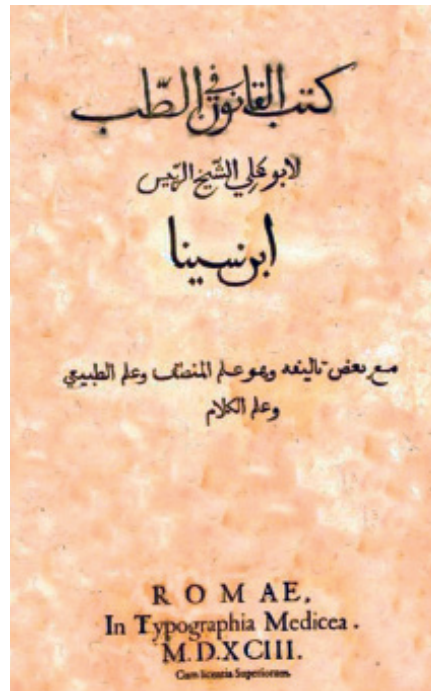 كتب القانون في الطب
لابو علي الشيخ الرئيس
ابن سينا
مع بعض تاليفه وهو علم المنطق وعلم الطبيعي
وعلم الكلام
ROMAE,
In Typographia Medicea.
M.D.XCIII.
Cum licentia Superiorum.